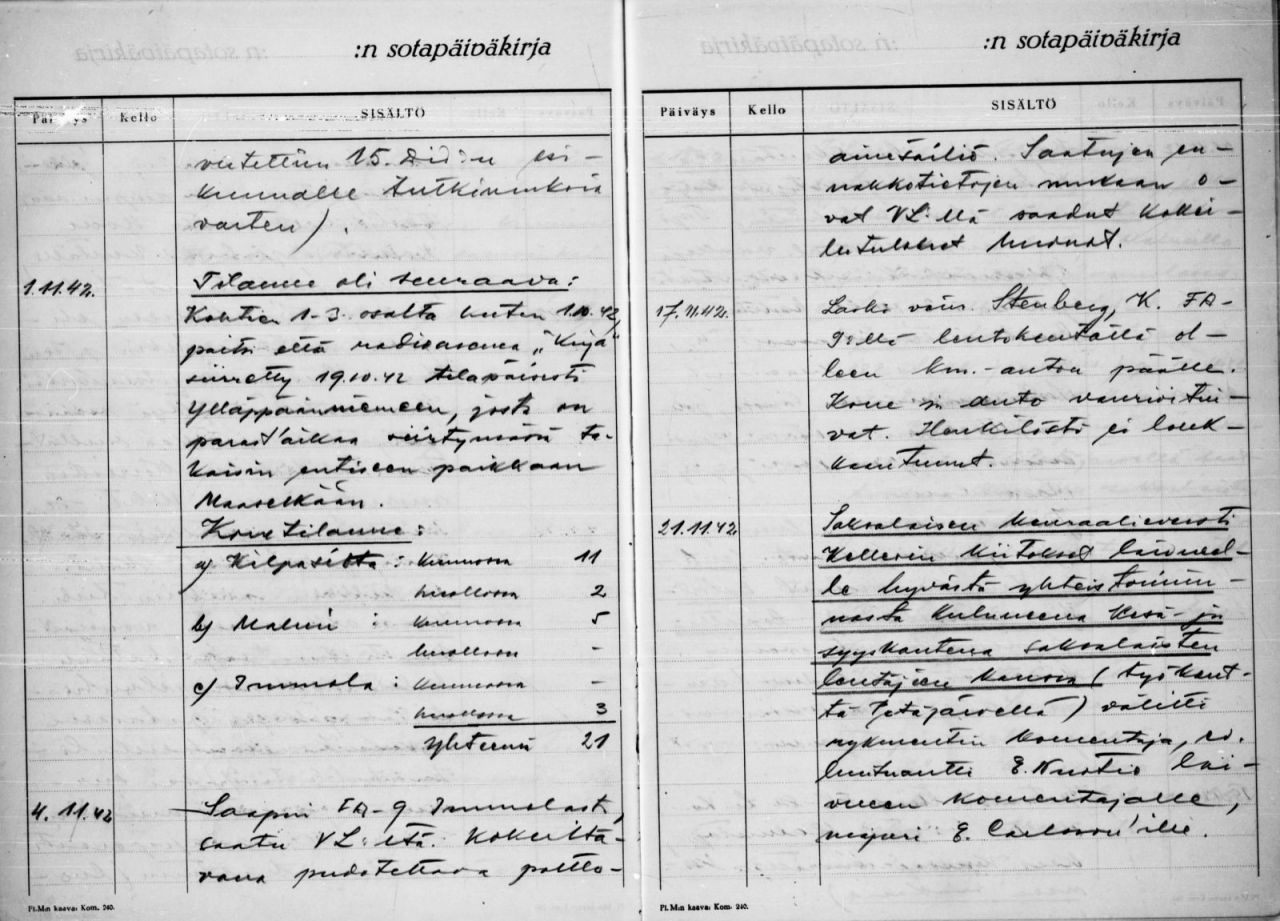 :n sotapäiväkirja
Päiväys Kello SISÄLTÖ
15. Div:n esi-
kunnalle tutkimuksia
varten).
1.11.42. Tilanne oli seuraava:
Kohtien 1-3. osalta kuten 1.10.42,
paitsi että radioasema „Kirja"
siirretty 19.10.42 tilapäisesti
Ylläppäänniemeen, josta on
parast'aikaa siirtymässä ta-
kaisin entiseen paikkaan
Maaselkään.
Konetilanne:
a) Hilpasilta: kunnossa 11
huollossa 2
b) Malmi: kunnossa 5
huollossa -
c) Immola: kunnossa -
huollossa 3
Yhteensä 21
4.11.42 Saapui FA-9 Immolast,
saatu VL:ltä. Kokeilta-
vana pudotettava poltto-
Ft.M:n kaava: Kom. 240.
:n sotapäiväkirja
Päiväys Kello SISÄLTÖ
ainesäiliö. Saatujen en-
nakkotietojen mukaan o-
vat VL:llä saadut kokei-
lutulokset huonot.
17.11.42. Laski vänr. Stenberg, K. FA-
lentokentällä ol-
leen km.-auton päälle.
Kone ja auto vaurioitui-
vat. Henkilöstö ei louk-
kaantunut.
21.11.42 Saksalaisen kenraalieversti
Kellerin kiitokset laivueel-
le hyvästä yhteistoimin-
nasta kuluneena kesä- ja
syyskautena saksalaisten
lentäjien kanssa (työkent-
tä Petäjärvellä) välitti
rykmentin komentaja, ev.
luutnantti E. Nuotio lai-
vueen komentajalle,
majuri E. Carlsson'ille.
Ft.M:n kaava: Kom. 240.